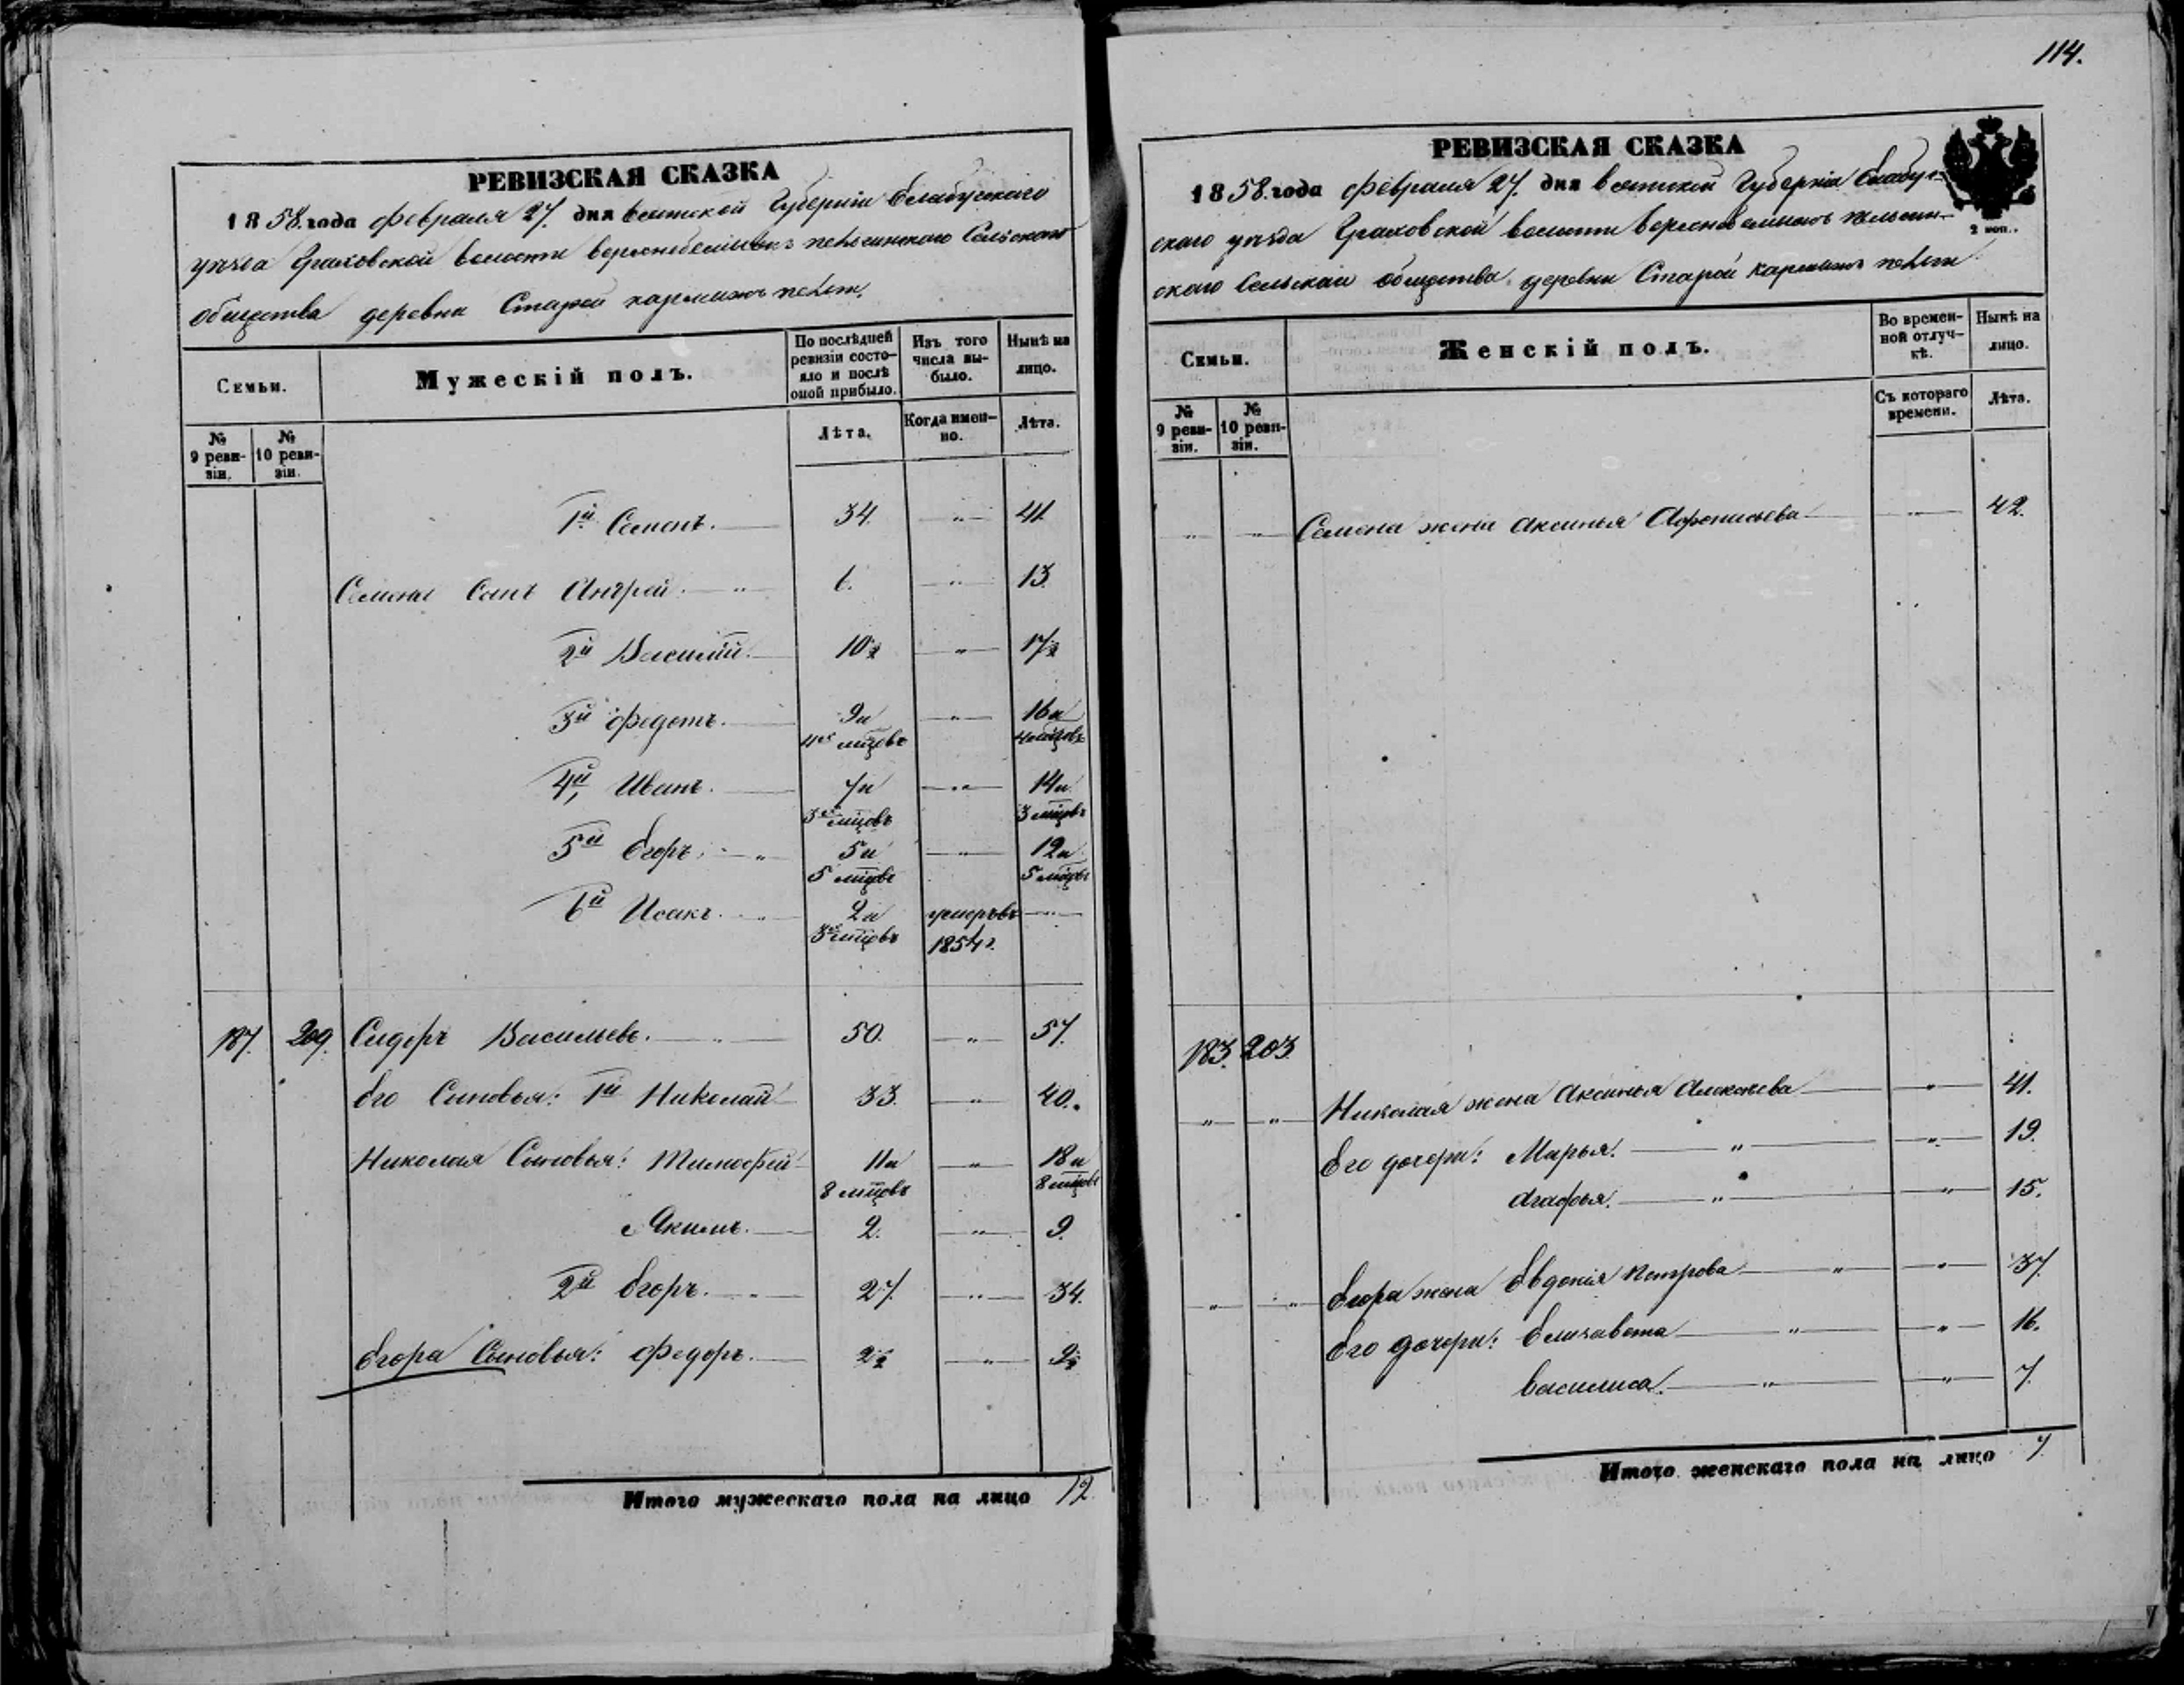 114.
РЕВИЗСКАЯ СКАЗКА
1858. года февраля 27. дня Вятской Губерніи Елабужского
уѣзда Граховской волости Сельского
общества деревни Старой
Семьи.
Мужескій полъ.
По послѣдней ревизіи состояло и послѣ оной прибыло.
Изъ того числа вы-было.
Нынѣ на лицо.
№ 9 реви-зіи.
№ 10 реви-зіи.
Лѣта.
Когда имен-но.
Лѣта.
1й Семенъ. 34. " 41.
Семена Сынъ Андрей. " 6. " 13.
2й Василий. 10½ " 17½
3й Федотъ. 9и " 16и
4хъ мцовъ 4 мцовъ
4й Иванъ. 7и " 14и
3хъ мцовъ 3 мцовъ
5й Егоръ. " 5и " 12и
5 мцовъ 5 мцовъ
6й Исакъ. " 2и умеръ въ "
3хъ мцовъ 1854 г.
187. 209. Сидоръ Васильевъ. " 50. " 57.
Его Сыновья: 1й Николай 33. " 40.
Николая Сыновья: Тимофей 11и " 18и
8 мцовъ 8 мцовъ
Якимъ. 2. " 9.
2й Егоръ. " 27. " 34.
Егора Сыновья: Федоръ. 2½ " 9½
Итого мужескаго пола на лицо 12.
РЕВИЗСКАЯ СКАЗКА
1858. года февраля 27. дня Вятской Губерніи Елабуж-
скаго уѣзда Граховской волости
2 коп.
скаго Сельскаго общества деревни Старой
Семьи.
Женскій полъ.
Во времен-ной отлуч-кѣ.
Нынѣ на лицо.
№ 9 реви-зіи.
№ 10 реви-зіи.
Съ котораго времени.
Лѣта.
" " Семена жена Аксинья Афонасьева " 42.
183. 203.
" " Николая жена Аксинья Алексѣева " 41.
Его дочери: Марья. " " 19.
Агафья. " " 15.
" " Егора жена Евдокія Петрова " " 37.
Его дочери: Елизавета " " 16.
Василиса. " " 7.
Итого женскаго пола на лицо 7.